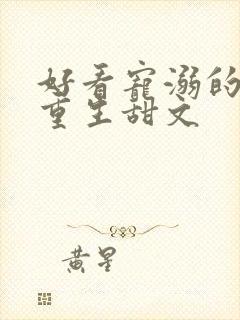 好看寵溺的
重生甜文
黃星